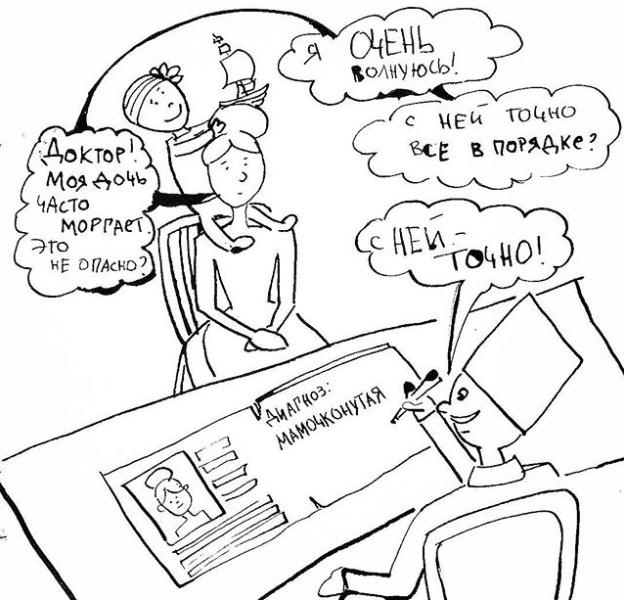 Доктор!
Моя дочь
часто
моргает.
Это
не опасно?
Я ОЧЕНЬ
ВОЛНУЮСЬ!
С НЕЙ ТОЧНО
ВСЕ В ПОРЯДКЕ?
С НЕЙ –
ТОЧНО!
ДИАГНОЗ:
МАМОЧКОНУТАЯ